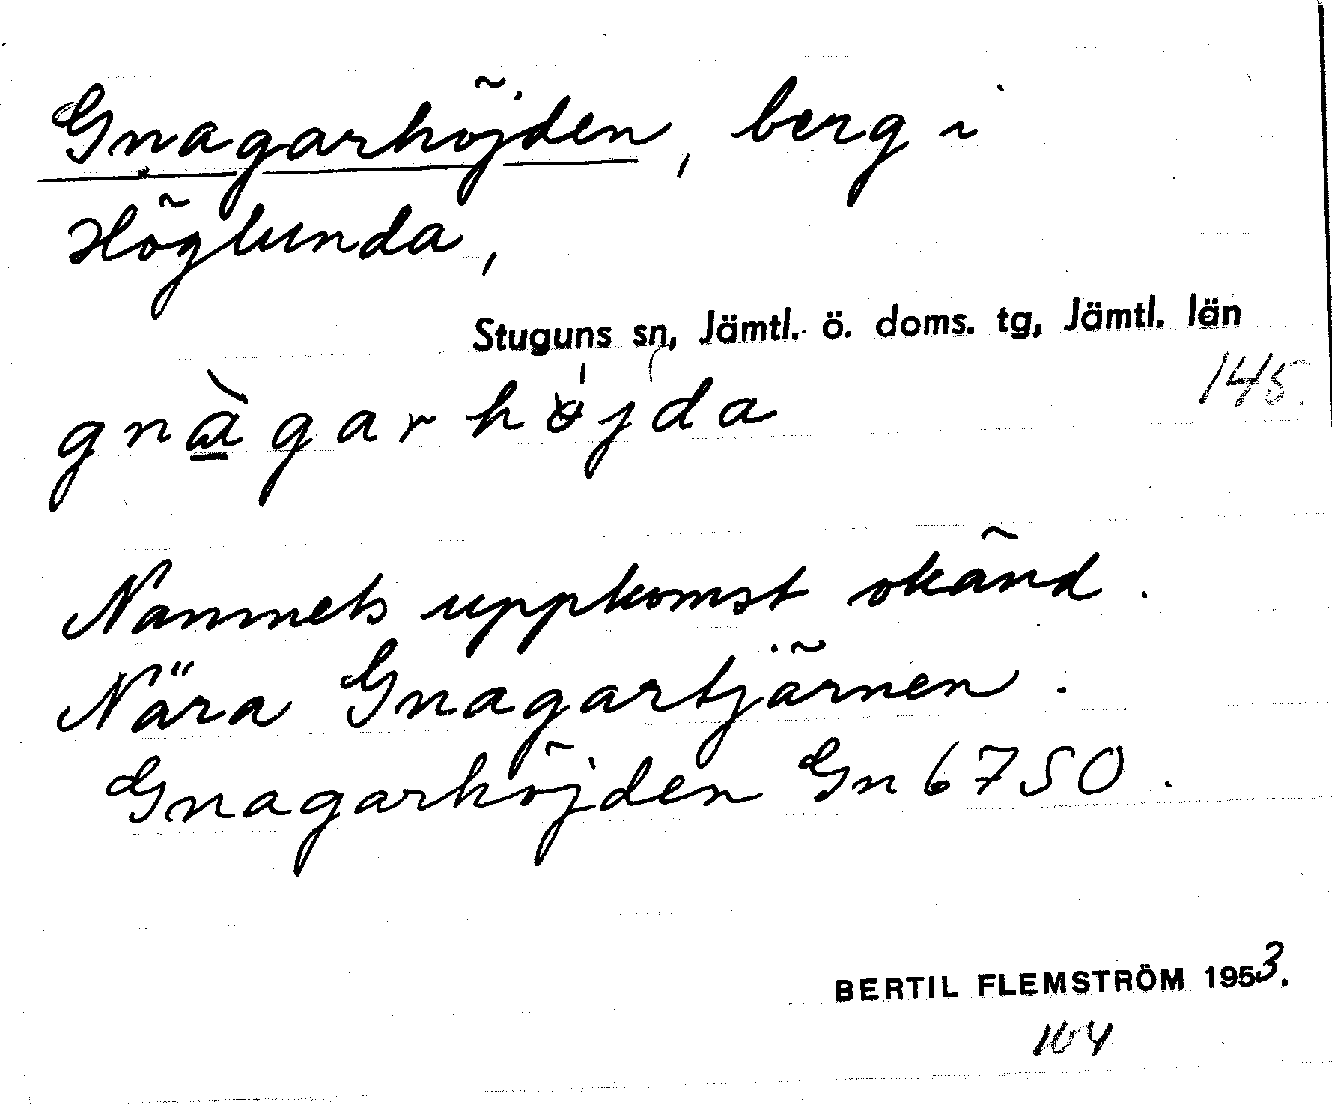 Gnagarhöjden, berg i
Höglunda,
Stuguns sn, Jämtl. ö. doms. tg, Jämtl. län
145.
gnàgarhøjda
Namnets uppkomst okänd.
Nära Gnagartjärnen.
Gnagarhöjden Gn 6750.
BERTIL FLEMSTRÖM 1953.
164